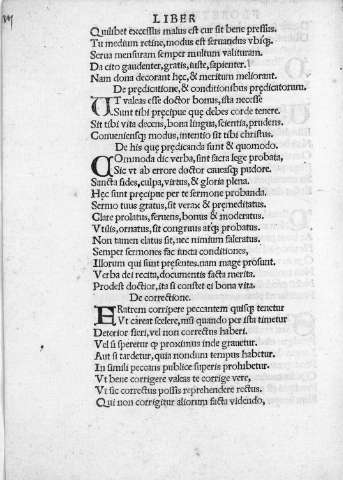 LIBER
Quilibet excessus malus est cur sit bene pressus.
Tu medium retine, modus est seruandus vbiqꝫ.
Serua mensuram semper multum valituram.
Da cito gaudenter, gratis, iuste, sapienter.
Nam dona decorant hęc, & meritum meliorant.
De prędicatione, & conditionibus prędicatorum.
UT valeas esse doctor bonus, ista necesse
Sunt tibi pręcipue quę debes corde tenere.
Sit tibi vita decens, bona lingua, scientia, prudens.
Conueniensqꝫ modus, intentio sit tibi christus.
De his quę prędicanda sunt & quomodo.
COmmoda dic verba, sint sacra lege probata,
Sic vt ab errore doctor caueasqꝫ pudore.
Sancta fides, culpa, virtus, & gloria plena.
Hęc sunt pręcipue per te sermone probanda.
Sermo tuus gratus, sit verax & pręmeditatus.
Clare prolatus, feruens, bonus & moderatus.
Vtilis, ornatus, sit congruus atqꝫ probatus.
Non tamen elatus sit, nec nimium faleratus.
Semper sermones fac iuxta conditiones,
Illorum qui sunt pręsentes, nam mage prosunt.
Verba dei recita, documentis facta merita.
Prodest doctior, ita si constet ei bona vita.
De correctione.
FRatrem corripere peccantem quisqꝫ tenetur
Vt careat scelere, nisi quando per ista timetur
Deterior fieri, vel non correctus haberi.
Vel si speretur qꝫ proximus inde grauetur.
Aut si tardetur, quia nondum tempus habetur.
In simili peccans publice superis prohibetur.
Vt bene corrigere valeas te corrige vere,
Vt sic correctus possis reprehendere rectus.
Qui non corrigitur aliorum facta videndo,